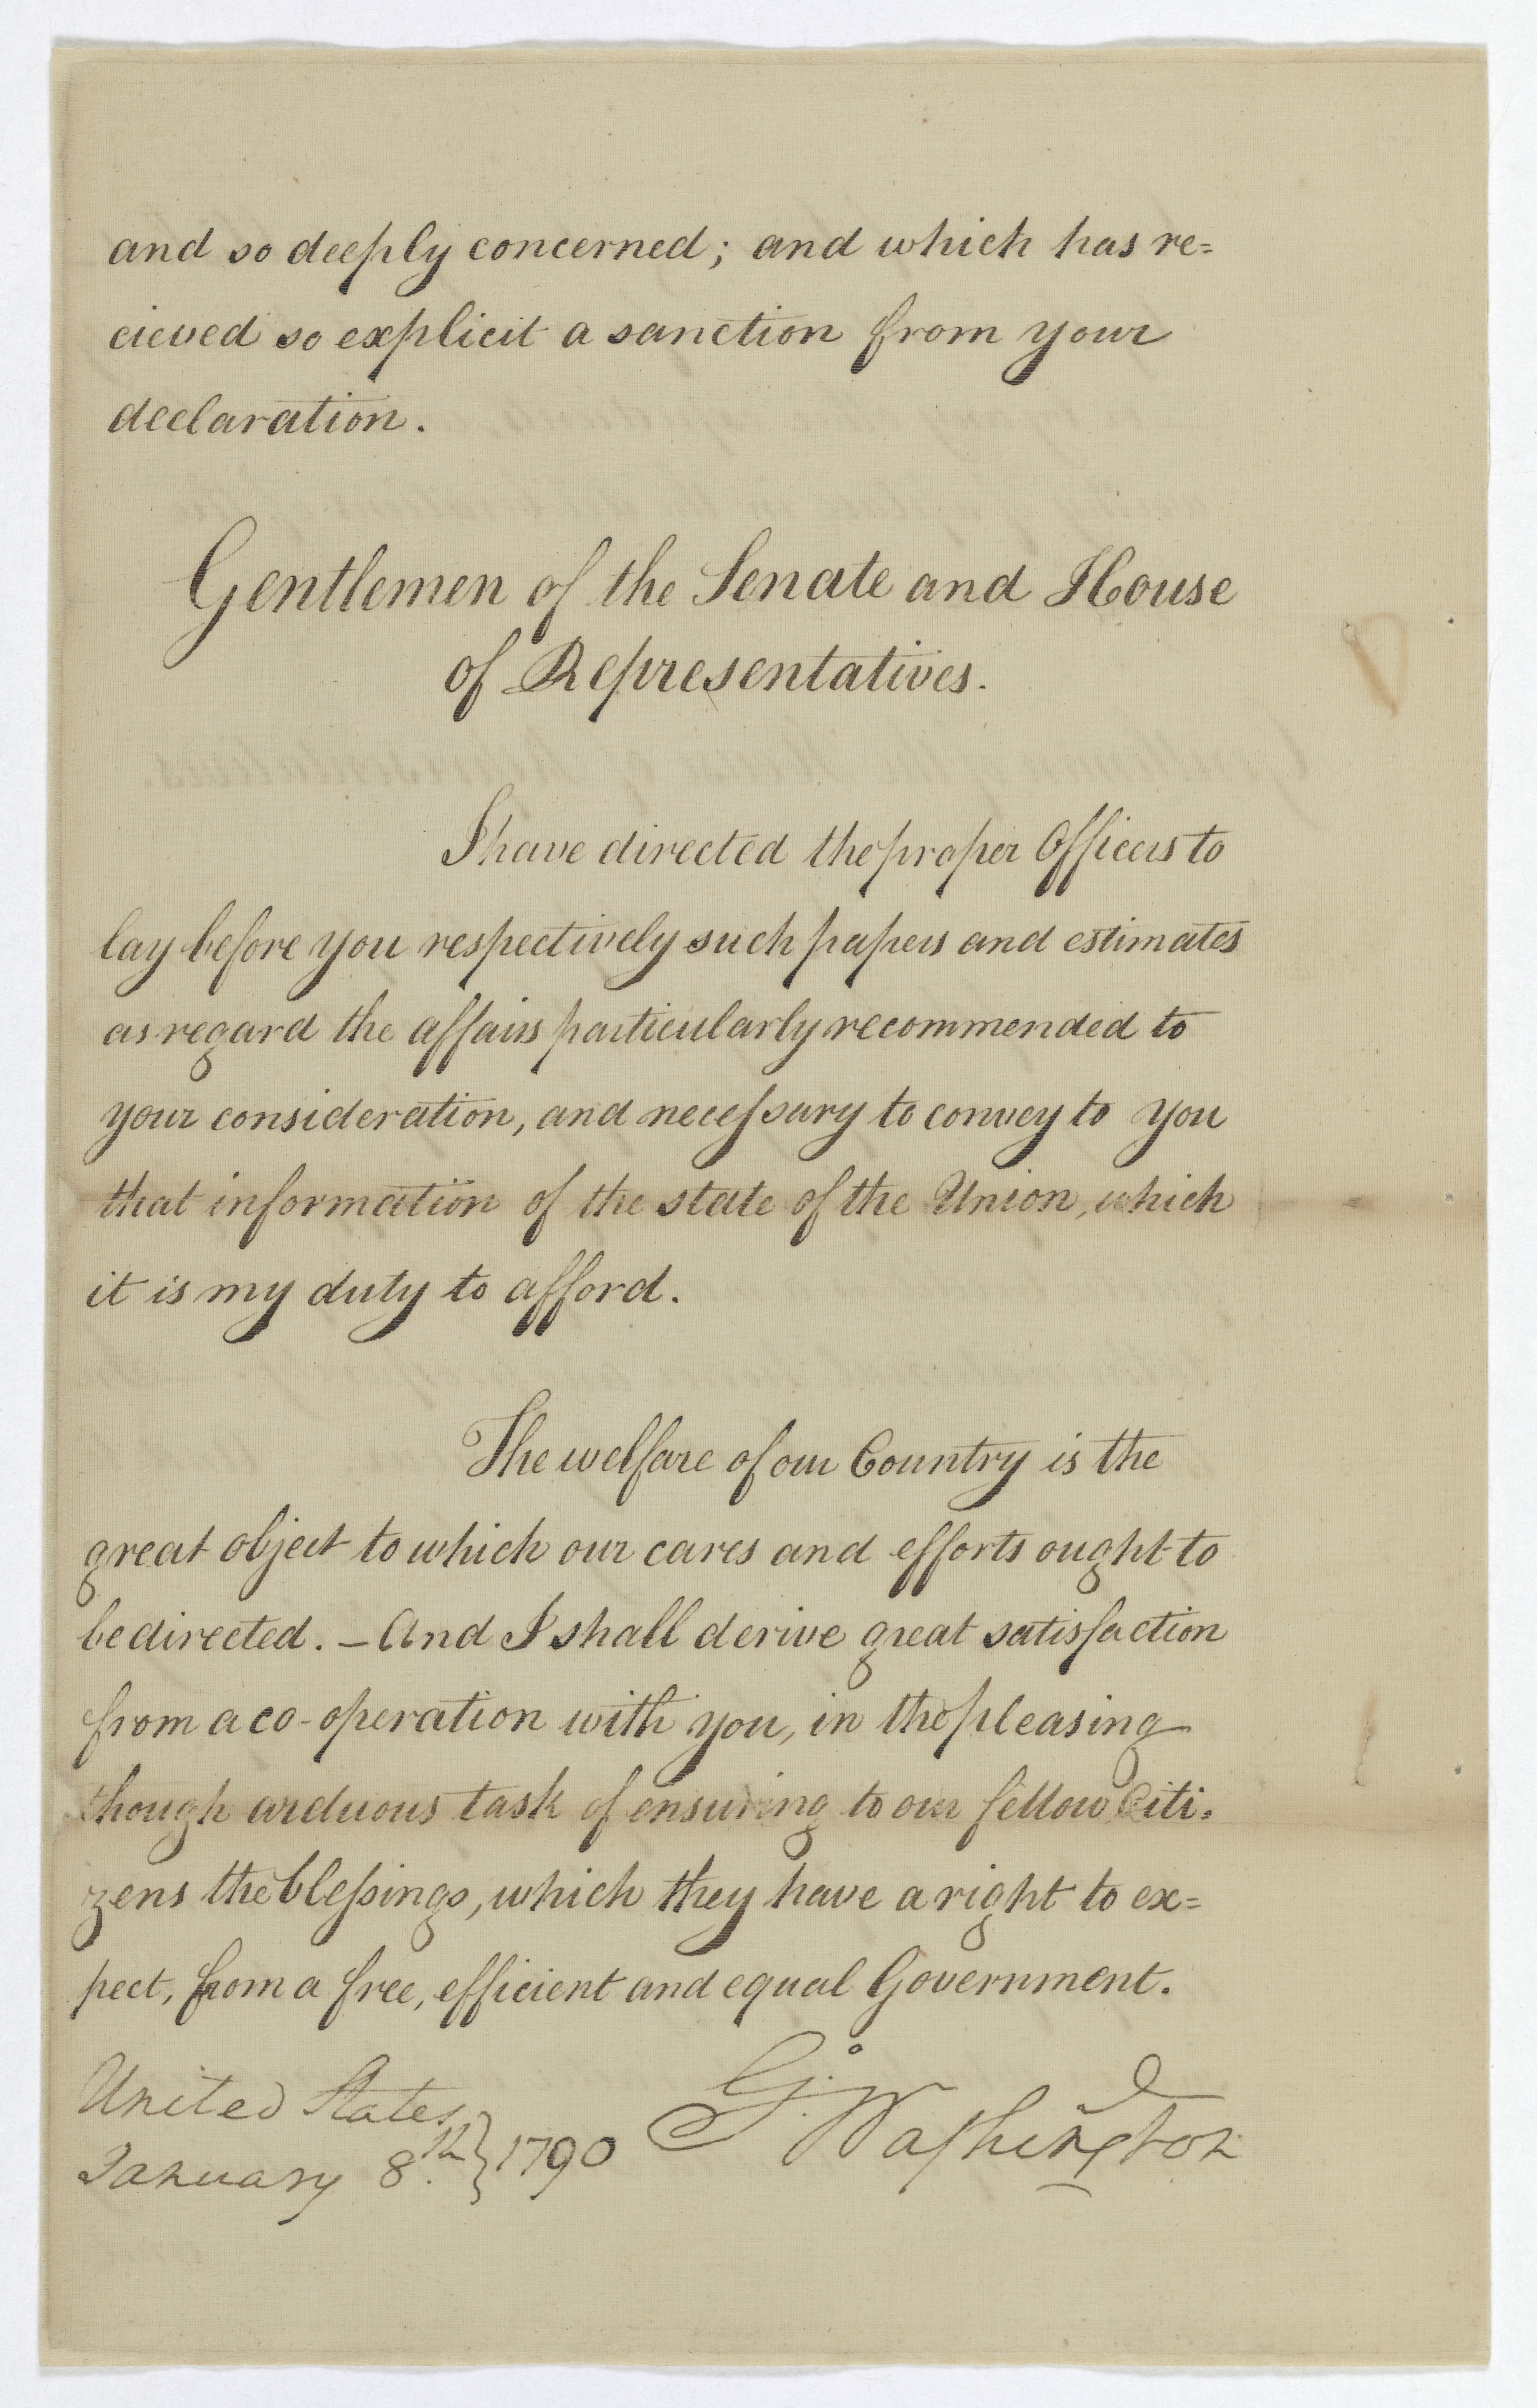 and so deeply concerned; and which has re=
cieved so explicit a sanction from your
declaration.
Gentlemen of the Senate and House
of Representatives.
I have directed the proper Officers to
lay before you respectively such papers and estimates
as regard the affairs particularly recommended to
your consideration, and neceſsary to convey to you
that information of the state of the Union, which
it is my duty to afford.
The welfare of our Country is the
great object to which our cares and efforts ought to
be directed. – And I shall derive great satisfaction
from a co-operation with you, in the pleasing
though arduous task of ensuring to our fellow Citi=
zens the bleſsings, which they have a right to ex=
pect, from a free, efficient and equal Government.
United States
January 8.th } 1790
G.o Waſhington